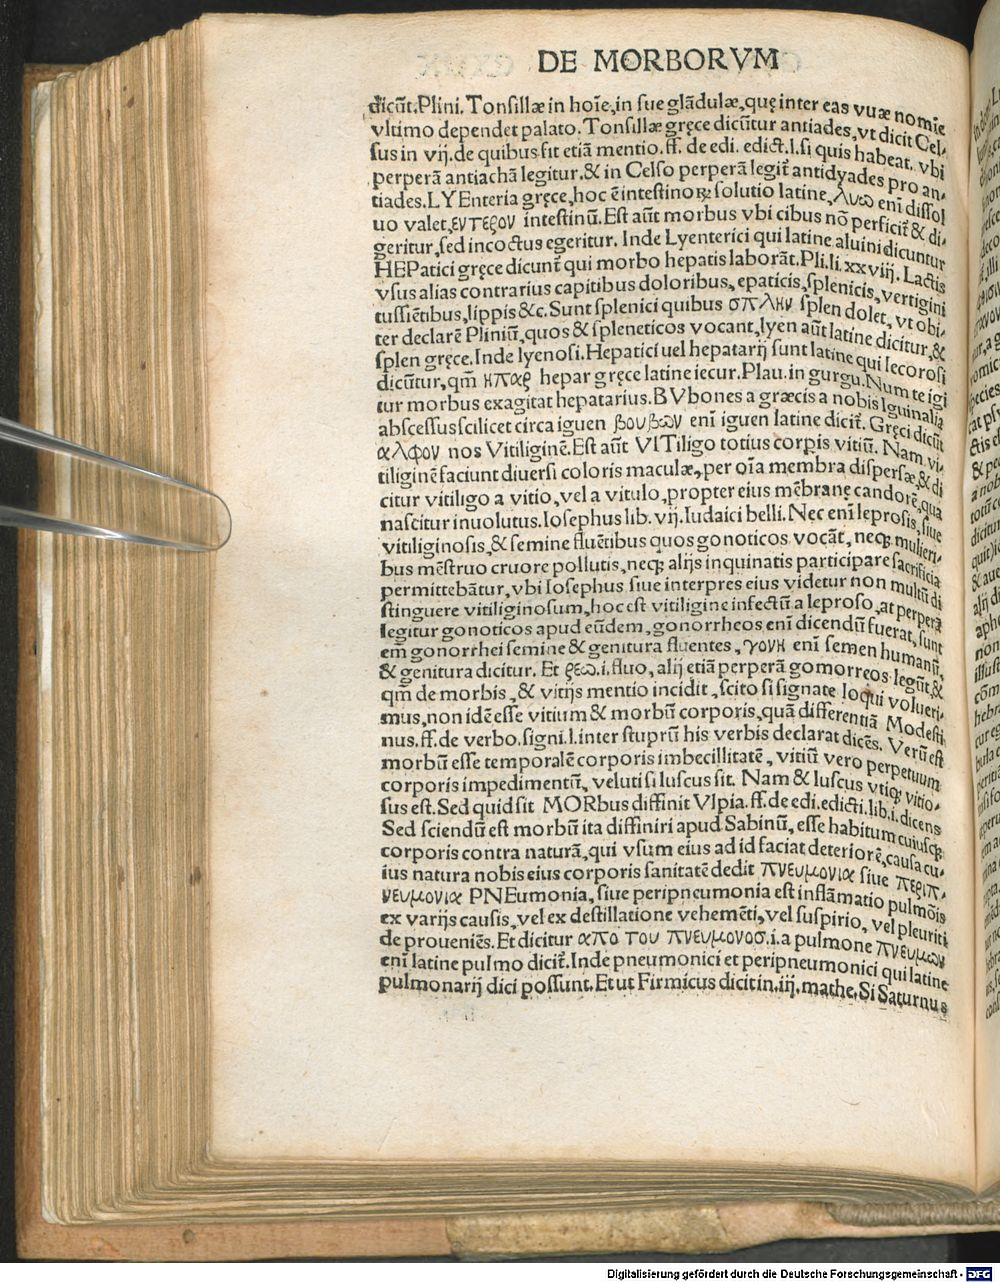 DE MORBORVM
dicūt.Plini. Tonsillæ in hoīe,in sue glādulæ,quę inter eas vuæ nomīe
vltimo dependet palato. Tonsillæ gręce dicūtur antiades,vt dicit Cel-
sus in vij.de quibus fit etiā mentio.ff. de edi. edict.l.si quis habeat. vbi
perperā antiachā legitur.& in Celso perperā legit̄ antidyades pro an-
tiades.LYEnteria gręce,hoc ē intestinoꝝ solutio latine,λυω enī dissol
uo valet,εντερον intestinū. Est aūt morbus vbi cibus nō perficit̄ & di-
geritur,sed incoctus egeritur. Inde Lyenterici qui latine aluini dicuntur
HEPatici gręce dicunt̄ qui morbo hepatis laborāt.Pli.li.xxviij. Lactis
vsus alias contrarius capitibus doloribus,epaticis,splenicis,vertigini
tussiētibus,lippis&c.Sunt splenici quibus σπλην splen dolet, vt obi-
ter declarē Pliniū,quos & spleneticos vocant,lyen aūt latine dicitur,&
splen gręce.Inde lyenosi.Hepatici uel hepatarij sunt latine qui Iecorosi
dicūtur,qm̄ ηπαρ hepar gręce latine iecur.Plau.in gurgu.Num te igi
tur morbus exagitat hepatarius.BVbones a græcis a nobis Iguinalia
abscessus scilicet circa iguen βουβων enī iguen latine dicit̄. Gręci dicūt
αλφον nos Vitiliginē.Est aūt VITiligo totius corpis vitiū. Nam vi-
tiliginē faciunt diuersi coloris maculæ,per oīa membra dispersæ,& di
citur vitiligo a vitio,vel a vitulo,propter eius mēbranę candorē,qua
nascitur inuolutus.Iosephus lib. vij.Iudaici belli.Nec enī leprosis,siue
vitiliginosis,& semine fluētibus quos gonoticos vocāt, neqꝫ mulieri-
bus mēstruo cruore pollutis,neqꝫ alijs inquinatis participare sacrificia
permittebātur,vbi Iosephus siue interpres eius videtur non multū di
stinguere vitiliginosum,hoc est vitiligine infectū a leproso,at perperā
legitur gonoticos apud eūdem,gonorrheos enī dicendū fuerat, sunt
em̄ gonorrhei semine & genitura fluentes, γονη enī semen humanū,
& genitura dicitur. Et ρεω.i.fluo, alij etiā perperā gomorreos legūt,&
qm̄ de morbis, & vitijs mentio incidit, scito si signate loqui volueri-
mus,non idē esse vitium & morbū corporis,quā differentiā Modesti
nus.ff.de verbo.signi.l.inter stuprū his verbis declarat dicēs. Verū est
morbū esse temporalē corporis imbecillitatē, vitiū vero perpetuum
corporis impedimentū, veluti si luscus sit. Nam & luscus vtiqꝫ vitio-
sus est.Sed quid sit MORbus diffinit Vlpia.ff.de edi.edicti.lib.i.dicens
Sed sciendū est morbū ita diffiniri apud Sabinū, esse habitum cuiusqꝫ
corporis contra naturā,qui vsum eius ad id faciat deteriorē,causa cu-
ius natura nobis eius corporis sanitatē dedit πνευμονια siue περιπ-
νευμονια PNEumonia, siue peripneumonia est inflāmatio pulmōis
ex varijs causis,vel ex destillatione vehemēti,vel suspirio, vel pleuriti
de proueniēs. Et dicitur απο του πνευμονοσ.i.a pulmone πνευμων
enī latine pulmo dicit̄.Inde pneumonici et peripneumonici qui latine
pulmonarij dici possunt.Et ut Firmicus dicit in.iij.mathe.Si Saturnus
Digitalisierung gefördert durch die Deutsche Forschungsgemeinschaft - DFG